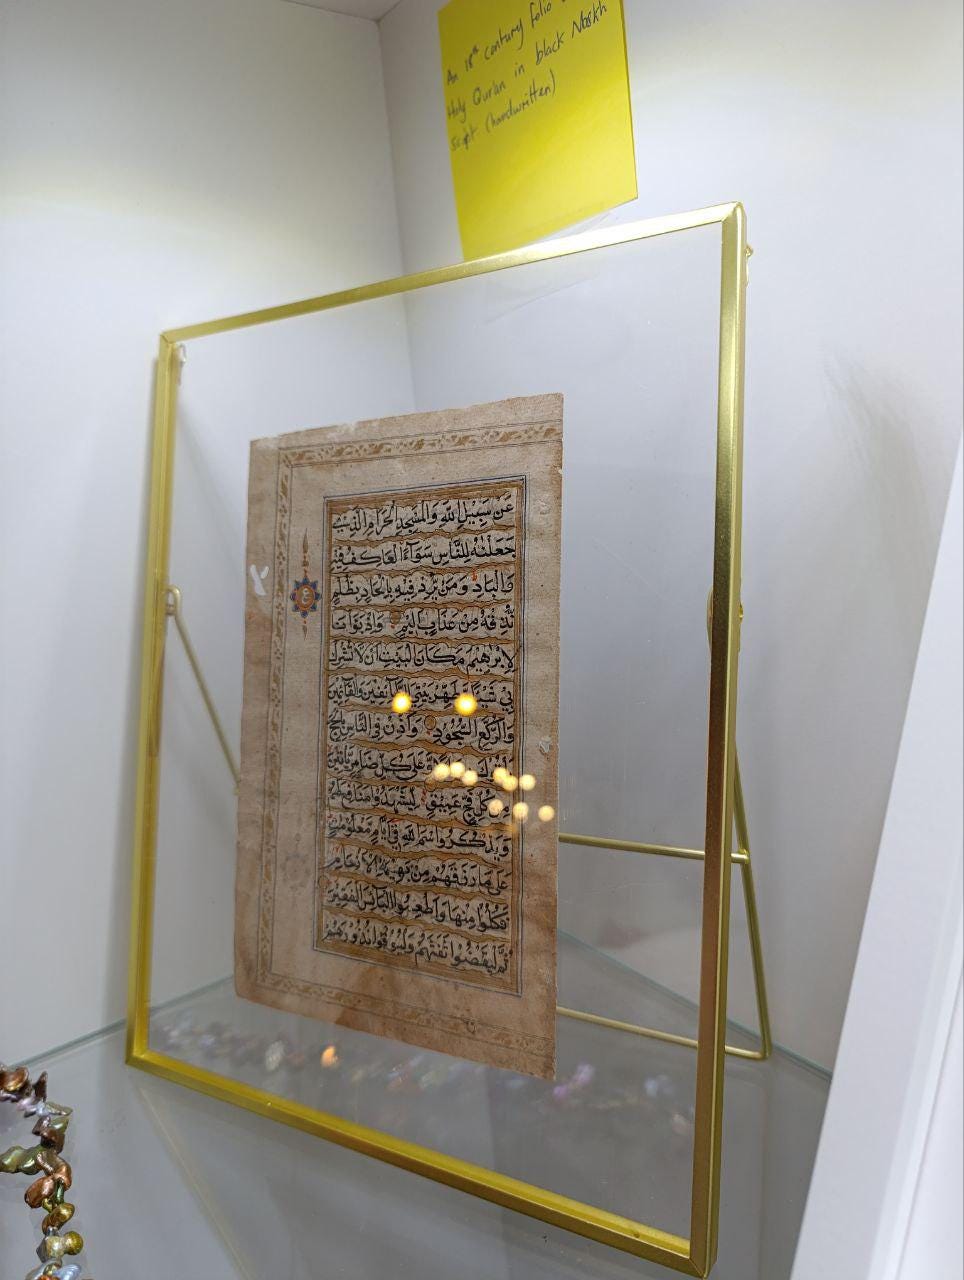 An 18th century folio
Holy Quran in black Naskh
script (handwritten)
عَن سَبِيْلِ اللّٰهِ وَالْمَسْجِدِ الْحَرَامِ الَّذِيْ
جَعَلْنٰهُ لِلنَّاسِ سَوَآءً الْعَاكِفُ فِيْهِ
وَالْبَادِ وَمَنْ يُّرِدْ فِيْهِ بِاِلْحَادٍ بِظُلْمٍ
نُّذِقْهُ مِنْ عَذَابٍ اَلِيْمٍ وَاِذْ بَوَّاْنَا
لِاِبْرٰهِيْمَ مَكَانَ الْبَيْتِ اَنْ لَّا تُشْرِكْ
بِيْ شَيْـًٔا وَّطَهِّرْ بَيْتِيَ لِلطَّآئِفِيْنَ وَالْقَآئِمِيْنَ
وَالرُّكَّعِ السُّجُوْدِ وَاَذِّنْ فِى النَّاسِ بِالْحَجِّ
عَلٰى كُلِّ ضَامِرٍ يَّاْتِيْنَ
مِنْ كُلِّ فَجٍّ عَمِيْقٍ لِّيَشْهَدُوْا مَنَافِعَ لَهُمْ
وَيَذْكُرُوا اسْمَ اللّٰهِ فِيْٓ اَيَّامٍ مَّعْلُوْمٰتٍ
عَلٰى مَا رَزَقَهُمْ مِّنْ بَهِيْمَةِ الْاَنْعَامِ
فَكُلُوْا مِنْهَا وَاَطْعِمُوا الْبَآئِسَ الْفَقِيْرَ
ثُمَّ لْيَقْضُوْا تَفَثَهُمْ وَلْيُوْفُوْا نُذُوْرَهُمْ
ع